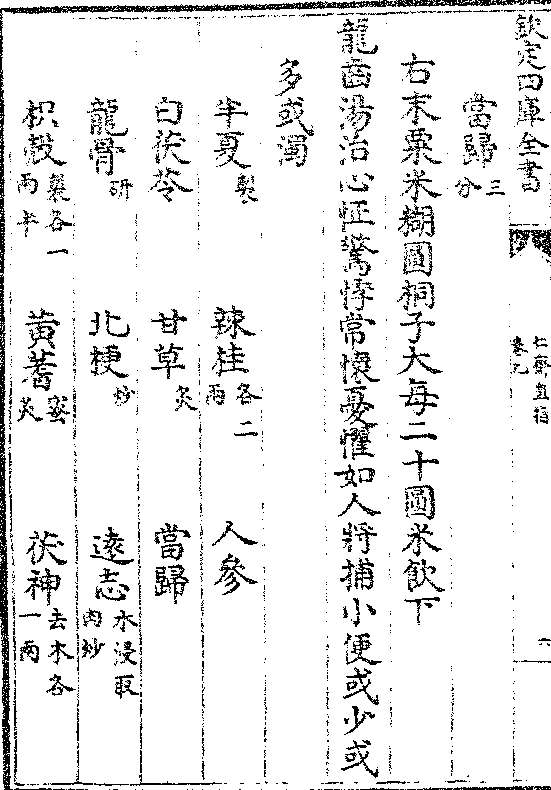 欽定四庫全書
仁齋直指
卷九
六
當歸三分
右末粟米糊圓桐子大每二十圓米飲下
龍齒湯治心怔驚悸常懷憂懼如人將捕小便或少或
多或濁
半夏製 辣桂各二兩 人參
白茯苓 甘草炙 當歸
龍骨研 北梗炒 遠志水浸取肉炒
枳殼製各一兩半 黃蓍蜜炙 茯神去木各一兩